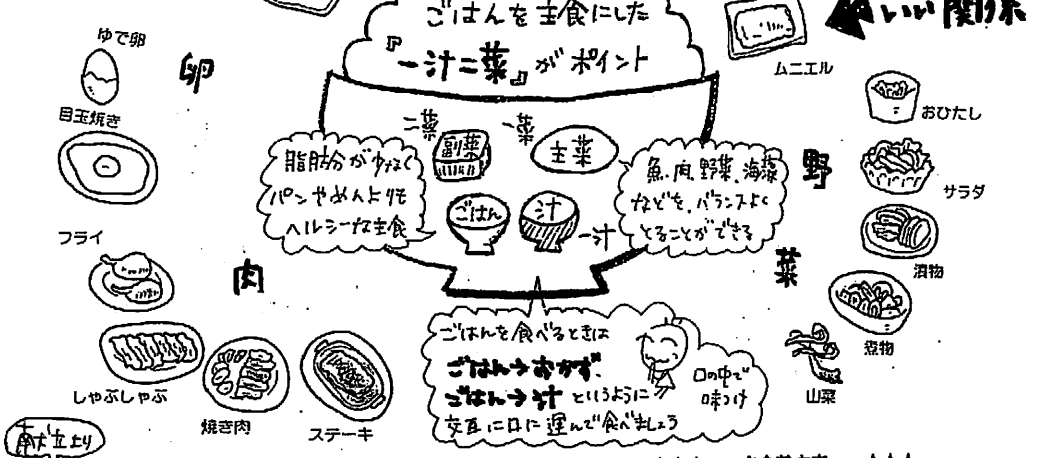 ごはんを主食にした
『一汁二菜』がポイント
いい関係
ムニエル
卵
ゆで卵
目玉焼き
二菜
副菜
一菜
主菜
ごはん
汁
一汁
脂肪分が少なく
パンやめんよりも
ヘルシーな主食
魚、肉、野菜、海藻
などを、バランスよく
とることができる
野
菜
おひたし
サラダ
漬物
煮物
山菜
肉
フライ
しゃぶしゃぶ
焼き肉
ステーキ
ごはんを食べるときは
ごはん→おかず、
ごはん→汁 というように
交互に口に運んで食べましょう
口の中で
味つけ
献立より